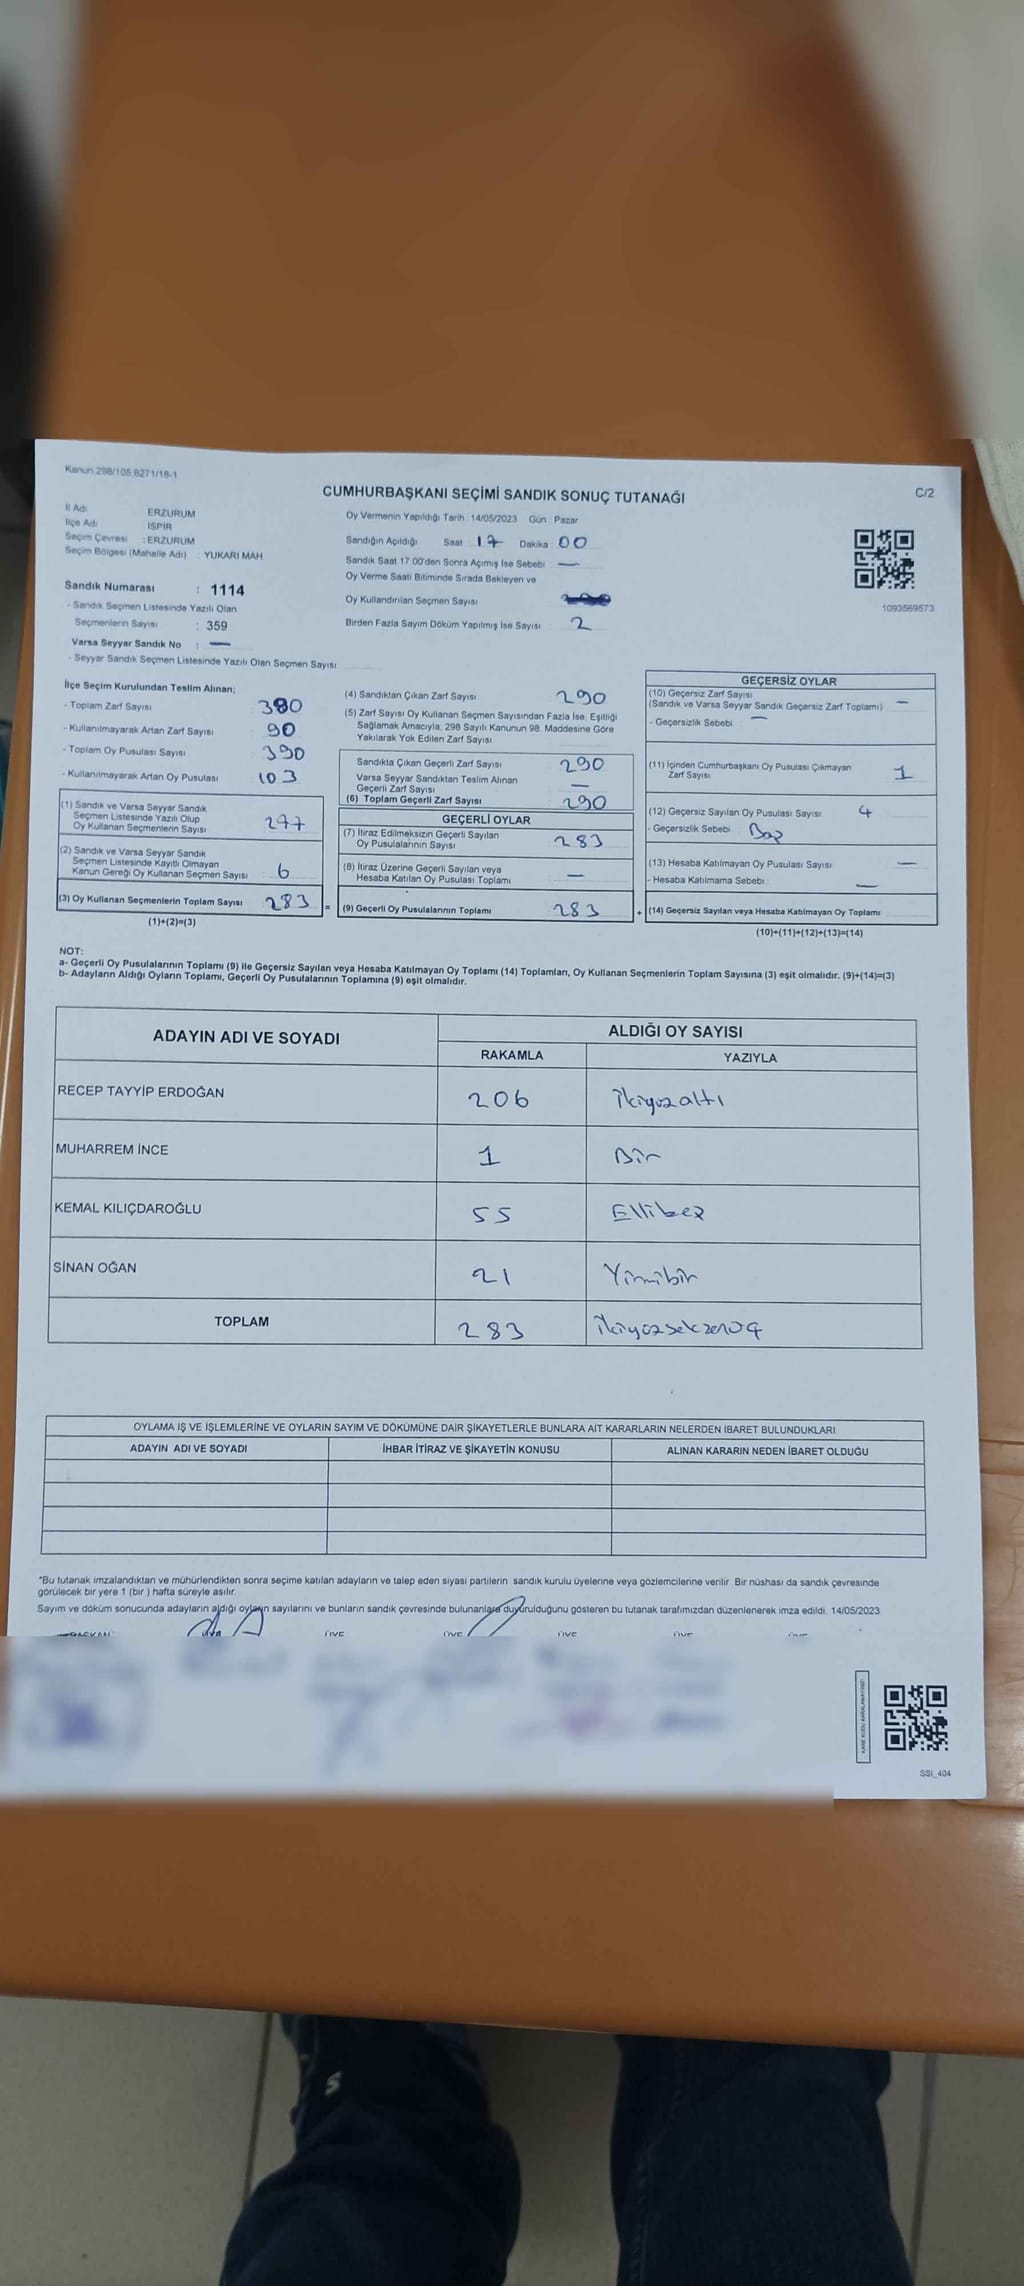 Kanun 298/105 6271/16-1
C/2
CUMHURBAŞKANI SEÇİMİ SANDIK SONUÇ TUTANAĞI
İl Adı ERZURUM
İlçe Adı İSPİR
Seçim Çevresi : ERZURUM
Seçim Bölgesi (Mahalle Adı) : YUKARI MAH
Sandık Numarası : 1114
- Sandık Seçmen Listesinde Yazılı Olan
Seçmenlerin Sayısı : 359
Varsa Seyyar Sandık No : —
- Seyyar Sandık Seçmen Listesinde Yazılı Olan Seçmen Sayısı
Oy Vermenin Yapıldığı Tarih :14/05/2023 Gün : Pazar
Sandığın Açıldığı Saat 17 Dakika 00
Sandık Saat 17 00'den Sonra Açımış İse Sebebi —
Oy Verme Saati Bitiminde Sırada Bekleyen ve
Oy Kullandırılan Seçmen Sayısı
Birden Fazla Sayım Döküm Yapılmış İse Sayısı 2
1093569573
İlçe Seçim Kurulundan Teslim Alınan;
- Toplam Zarf Sayısı 380
- Kullanılmayarak Artan Zarf Sayısı 90
- Toplam Oy Pusulası Sayısı 390
- Kullanılmayarak Artan Oy Pusulası 103
(1) Sandık ve Varsa Seyyar Sandık
Seçmen Listesinde Yazılı Olup
Oy Kullanan Seçmenlerin Sayısı 277
(2) Sandık ve Varsa Seyyar Sandık
Seçmen Listesinde Kayıtlı Olmayan
Kanun Gereği Oy Kullanan Seçmen Sayısı 6
(3) Oy Kullanan Seçmenlerin Toplam Sayısı 283 =
(1)+(2)=(3)
(4) Sandıktan Çıkan Zarf Sayısı 290
(5) Zarf Sayısı Oy Kullanan Seçmen Sayısından Fazla İse, Eşitliği
Sağlamak Amacıyla, 298 Sayılı Kanunun 98. Maddesine Göre
Yakılarak Yok Edilen Zarf Sayısı
Sandıkta Çıkan Geçerli Zarf Sayısı 290
Varsa Seyyar Sandıktan Teslim Alınan
Geçerli Zarf Sayısı —
(6) Toplam Geçerli Zarf Sayısı 290
GEÇERLİ OYLAR
(7) İtiraz Edilmeksizin Geçerli Sayılan
Oy Pusulalarının Sayısı 283
(8) İtiraz Üzerine Geçerli Sayılan veya
Hesaba Katılan Oy Pusulası Toplamı —
(9) Geçerli Oy Pusulalarının Toplamı 283 +
GEÇERSİZ OYLAR
(10) Geçersiz Zarf Sayısı
(Sandık ve Varsa Seyyar Sandık Geçersiz Zarf Toplamı) —
- Geçersizlik Sebebi : —
(11) İçinden Cumhurbaşkanı Oy Pusulası Çıkmayan
Zarf Sayısı 1
(12) Geçersiz Sayılan Oy Pusulası Sayısı 4
- Geçersizlik Sebebi : Boş
(13) Hesaba Katılmayan Oy Pusulası Sayısı —
- Hesaba Katılmama Sebebi : —
(14) Geçersiz Sayılan veya Hesaba Katılmayan Oy Toplamı
(10)+(11)+(12)+(13)=(14)
NOT:
a- Geçerli Oy Pusulalarının Toplamı (9) ile Geçersiz Sayılan veya Hesaba Katılmayan Oy Toplamı (14) Toplamları, Oy Kullanan Seçmenlerin Toplam Sayısına (3) eşit olmalıdır. (9)+(14)=(3)
b- Adayların Aldığı Oyların Toplamı, Geçerli Oy Pusulalarının Toplamına (9) eşit olmalıdır.
ADAYIN ADI VE SOYADI ALDIĞI OY SAYISI
RAKAMLA YAZIYLA
RECEP TAYYİP ERDOĞAN 206 İkiyüzaltı
MUHARREM İNCE 1 Bir
KEMAL KILIÇDAROĞLU 55 Ellibeş
SİNAN OĞAN 21 Yirmibir
TOPLAM 283 İkiyüzseksenüç
OYLAMA İŞ VE İŞLEMLERİNE VE OYLARIN SAYIM VE DÖKÜMÜNE DAİR ŞİKAYETLERLE BUNLARA AİT KARARLARIN NELERDEN İBARET BULUNDUKLARI
ADAYIN ADI VE SOYADI İHBAR İTİRAZ VE ŞİKAYETİN KONUSU ALINAN KARARIN NEDEN İBARET OLDUĞU
*Bu tutanak imzalandıktan ve mühürlendikten sonra seçime katılan adayların ve talep eden siyasi partilerin sandık kurulu üyelerine veya gözlemcilerine verilir. Bir nüshası da sandık çevresinde
görülecek bir yere 1 (bir ) hafta süreyle asılır.
Sayım ve döküm sonucunda adayların aldığı oyların sayılarını ve bunların sandık çevresinde bulunanlara duyurulduğunu gösteren bu tutanak tarafımızdan düzenlenerek imza edildi. 14/05/2023
BAŞKAN ÜYE ÜYE ÜYE ÜYE ÜYE
SSI_404